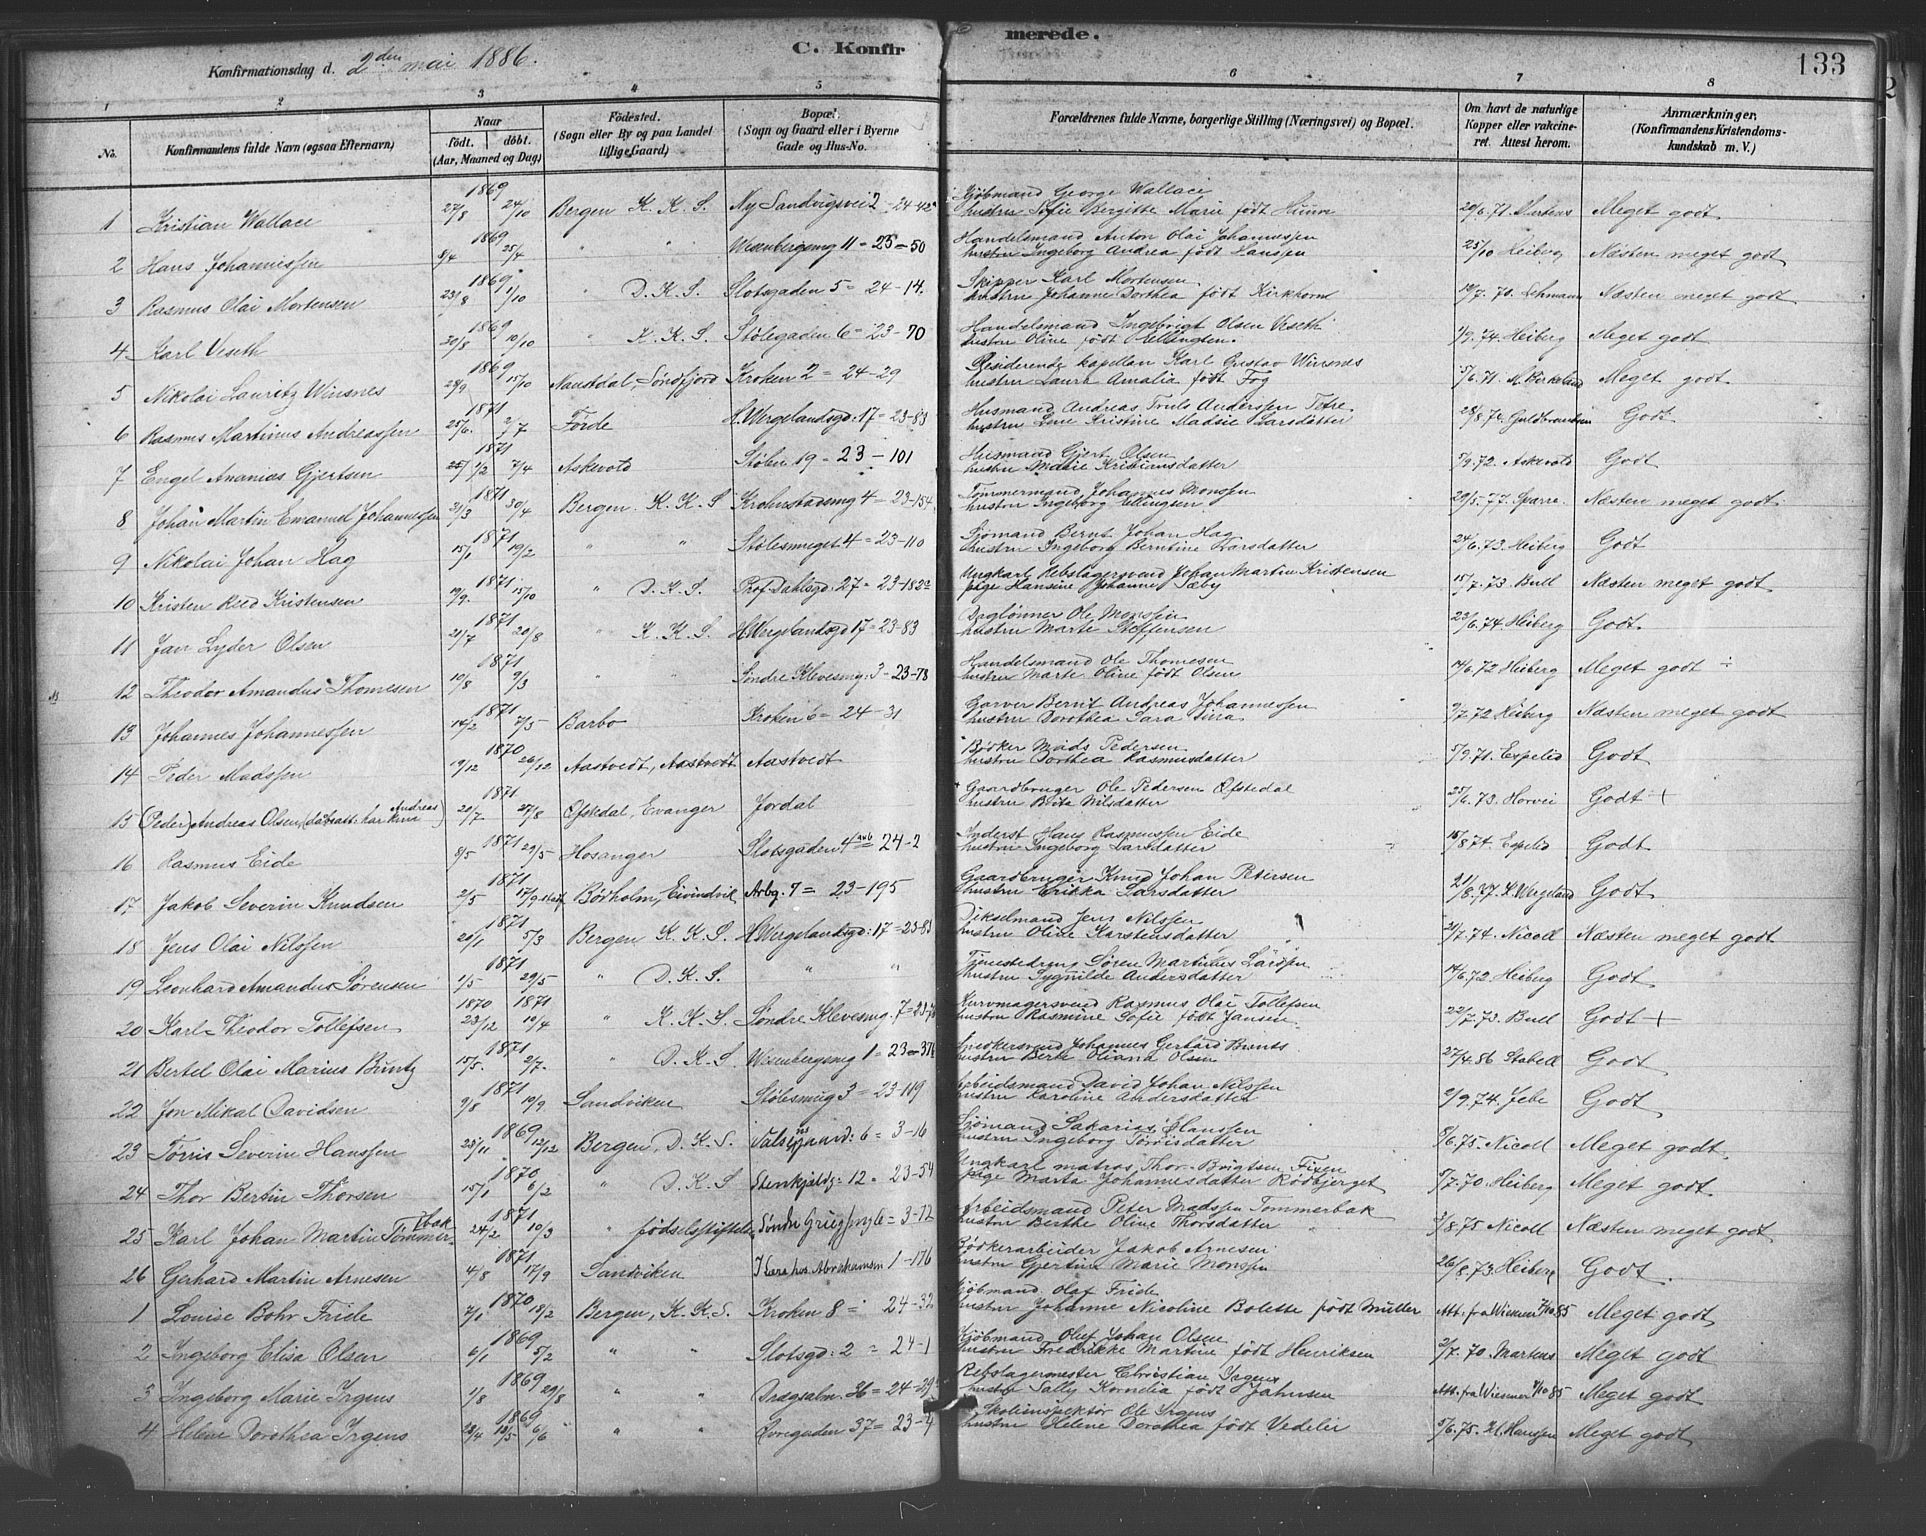 C. Konfirmerede.
133
Konfirmationsdag d. 2den mai 1886.
1 2 3 4 5 6 7 8
No. Konfirmandens fulde Navn (ogsaa Efternavn) Naar født. døbt. (Aar, Maaned og Dag) Fødested. (Sogn eller By og paa Landet tillige Gaard) Bopæl. (Sogn og Gaard eller i Byerne Gade og Hus-No. Forældrenes fulde Navne, borgerlige Stilling (Næringsvei) og Bopæl. Om havt de naturlige Kopper eller vakcineret. Attest herom. Anmærkninger, (Konfirmandens Kristendomskundskab m. V.)
1 Kristian Wallace 1869 27/8 24/10 Bergen K. K. S. Ny Sandvigsvei 2 - 24-42 Kjøbmand George Wallace hustru Sofie Bergitte Marie født Huum 20/6.71. Martens Meget godt
2 Hans Johannessen 1869 8/4 25/4 " " Wesenbergsmg 11 = 23-50 Handelsmand Anton Olai Johannessen hustru Ingeborg Andrea født Hansen 25/10 Heiberg Næsten meget godt
3 Rasmus Olai Mortensen 1869 23/8 1/10 " D. K. S. Slotsgaden 5 = 24-14. Skipper Karl Mortensen hustru Johanne Dorthea født Kirkhorn 19/7.70. Lehmann Næsten meget godt
4 Karl Veseth 1869 20/8 10/10 " K. K. S. Stølegaden 6 = 23-70 Handelsmand Ingebrigt Olsen Veseth hustru Oline født Mellingen. 1/9.74. Heiberg Meget godt
5 Nikolai Lauritz Winsnes 1869 28/9 15/10 Naustdal, Søndfjord Kroken 2 = 24-29 Residerende kapellan Karl Gustav Winsnes hustru Laura Amalia født Fog 5/6.71. M. Birkeland Meget godt
6 Rasmus Martinus Andreassen 1871 25/6. 2/7 Førde H. Wergelandsgd. 17 = 23-83 Husmand Andreas Truls Anderssen Tefre hustru Lene Kristine Madsie Larsdatter 28/8.76 Guldbrandsen Godt
7 Engel Ananias Gjertsen 1871 25/2 7/4 Askevold Stølen 19 = 23-101 Husmand Gjert Olsen hustru Marie Kristiansdatter 7/9.72. Askevold Godt
8 Johan Martin Emanuel Johannessen 1871 21/3 30/4 Bergen K. K. S Krohnstadsmg 4 = 23-154. Tømmermand Johannes Monssen hustru Ingeborg Ellingsen 29/5.77. Sparre. Næsten meget godt
9 Nikolai Johan Hag 1871 15/1 19/2 " " Stølesmuget 4 = 23-110 Sjømand Bernt Johan Hag hustru Ingeborg Berntine Larsdatter 24/6.73. Heiberg Godt
10 Kristen Reed Kristensen 1871 19/9. 15/10 " D. K. S. Prof. Dahlsgd: 27 = 23-182a Ungkarl Rebslagersvend Johan Martin Kristensen pige Hansine Johanne Sæby 15/7.73. Bull Næsten meget godt
11 Jan Lyder Olsen 1871 21/7 20/8 " K. K. S. H. Wergelandsgd 17 = 23-83 Daglønner Ole Monssen hustru Marte Steffensen 23/6.74. Heiberg Godt.
12 Theodor Amandus Thomesen 1871 10/8 9/3 " " Søndre Klevesmg: 3 - 23-78 Handelsmand Ole Thomesen hustru Marte Oline født Olsen 14/6.72 Heiberg Meget godt ÷
13 Johannes Johannessen 1871 14/2 7/5 Barbo Kroken 6 = 24-31 Garver Bernt Andreas Johannessen hustru Dorothea Sara 9/7.72 Heiberg Næsten meget godt
14 Peder Madssen 1870 19/12 26/12 Aastvedt, Aastvedt Aastvedt Bødker Mads Pedersen hustru Dorthea Rasmusdatter 5/9.71. Espelid Godt
15 (Peder) Andreas Olsen (døbeatt: har kun Andreas) 1871 20/7 27/8 Øfstedal, Evanger Jordal Gaardbruger Ole Pedersen Øfstedal hustru Brita Nilsdatter 25/6.73. Horvei Godt +
16 Rasmus Eide 1871 8/5 29/5 Hosanger Slotsgaden 4 a & b = 24-2 Inderst Hans Rasmussen Eide hustru Ingeborg Larsdatter 15/8.74. Espelid Godt
17 Jakob Severin Knudsen 1871 2/5 17/9 Børholm, Eivindvik Arbg. 7 = 23-195 Gaardbruger Knud Johan Petersen hustru Erikka Larsdatter 21/8.77. Wergeland Godt
18 Jens Olai Nilssen 1871 20/1 5/3 Bergen K. K. S. H. Wergelandsgd: 17 = 23-83 Pikselmand Jens Nilssen hustru Oline Karstensdatter 21/7.74. Nicoll Næsten meget godt
19 Leonhard Amandus Sørensen 1871 1/5 29/5 " D. K. S. " " Tjenestedreng Søren Martinus Larssen hustru Sygnilde Andersdatter 14/6.72 Heiberg Godt
20 Karl Theodor Tollefsen 1870 23/12 1871 10/4 " K. K. S. Søndre Klevesmg. 7 = 23-76 Kurvmagersvend Rasmus Olai Tollefsen hustru Rasmine Sofie født Jansen. 22/7.73. Bull Godt +
21 Bertel Olai Marius Buntz 1871 15/5. 2/7. " D. K. S Wesenbergsmg 1 = 23-37b Snedkersvend Johannes Gerhard Bunts hustru Berte Oliana Olsen 27/4.86 Stabell Godt
22 Jon Mikal Davidsen 1871 9/8 10/9 Sandviken Stølesmug 3 = 23-119 Arbeidsmand David Johan Nilssen hustru Karoline Andersdatter 2/9.74. Jebe Godt
23 Torris Severin Hanssen 1869 25/11 12/12 Bergen, D. K. S. Valsesgaard: 6 = 3-16 Sjømand Sakarias Hanssen hustru Ingeborg Torrisdatter 8/6.75. Nicoll Meget godt.
24 Thor Bertin Thorsen 1870 15/1 6/2 " D. K. S Stenkjeldg: 12 = 23-54 Ungkarl matros Thor Brigtsen Fixen pige Marta Johannesdatter Rødbjerget 5/7.70. Heiberg Meget godt
25 Karl Johan Martin Tommerbak 1871 24/2 10/3 " fødselsstiftelsen Søndre Griegsmg 6 = 3-72 Arbeidsmand Peter Madssen Tommerbak hustru Berthe Oline Thorsdatter 3/8.75 Nicoll Næsten meget godt
26 Gerhard Martin Arnesen 1871 4/8 17/9 Sandviken hos Abrahamsen 1-176 Bødkerarbeider Jakob Arnesen hustru Gjertine Marie Monssen 26/8.73. Heiberg Godt.
1 Louise Bohr Friele 1870 7/1 18/2 Bergen, K. K. S. Kroken 8 = 24-32 Kjøbmand Olaf Friele hustru Johanne Nicoline Bolette født Müller Att. fra Wiesener 7/10 85 Meget godt
2 Ingeborg Elisa Olsen 1869 6/1 5/2 " " Slotsgd: 2 = 24-1 Kjøbmand Oluf Johan Olsen hustru Fredrikke Martine født Henriksen 2/7.70. Martens Meget godt
3 Ingeborg Marie Irgens 1869 1/8 29/8 " " Dragsalm. 36 = 24-29 Rebslagermester Christian Irgens hustru Sally Kornelia født Jahnsen Att. fra Wiesener 7/10 85 Meget godt
4 Helene Dorothea Irgens 1869 28/4 13/5 6/6 " " Øvregaden 37 = 23-4 Skoleinspektør Ole Irgens hustru Helene Dorothea født Vedeler 5/6.75. Kl. Hanssen Meget godt